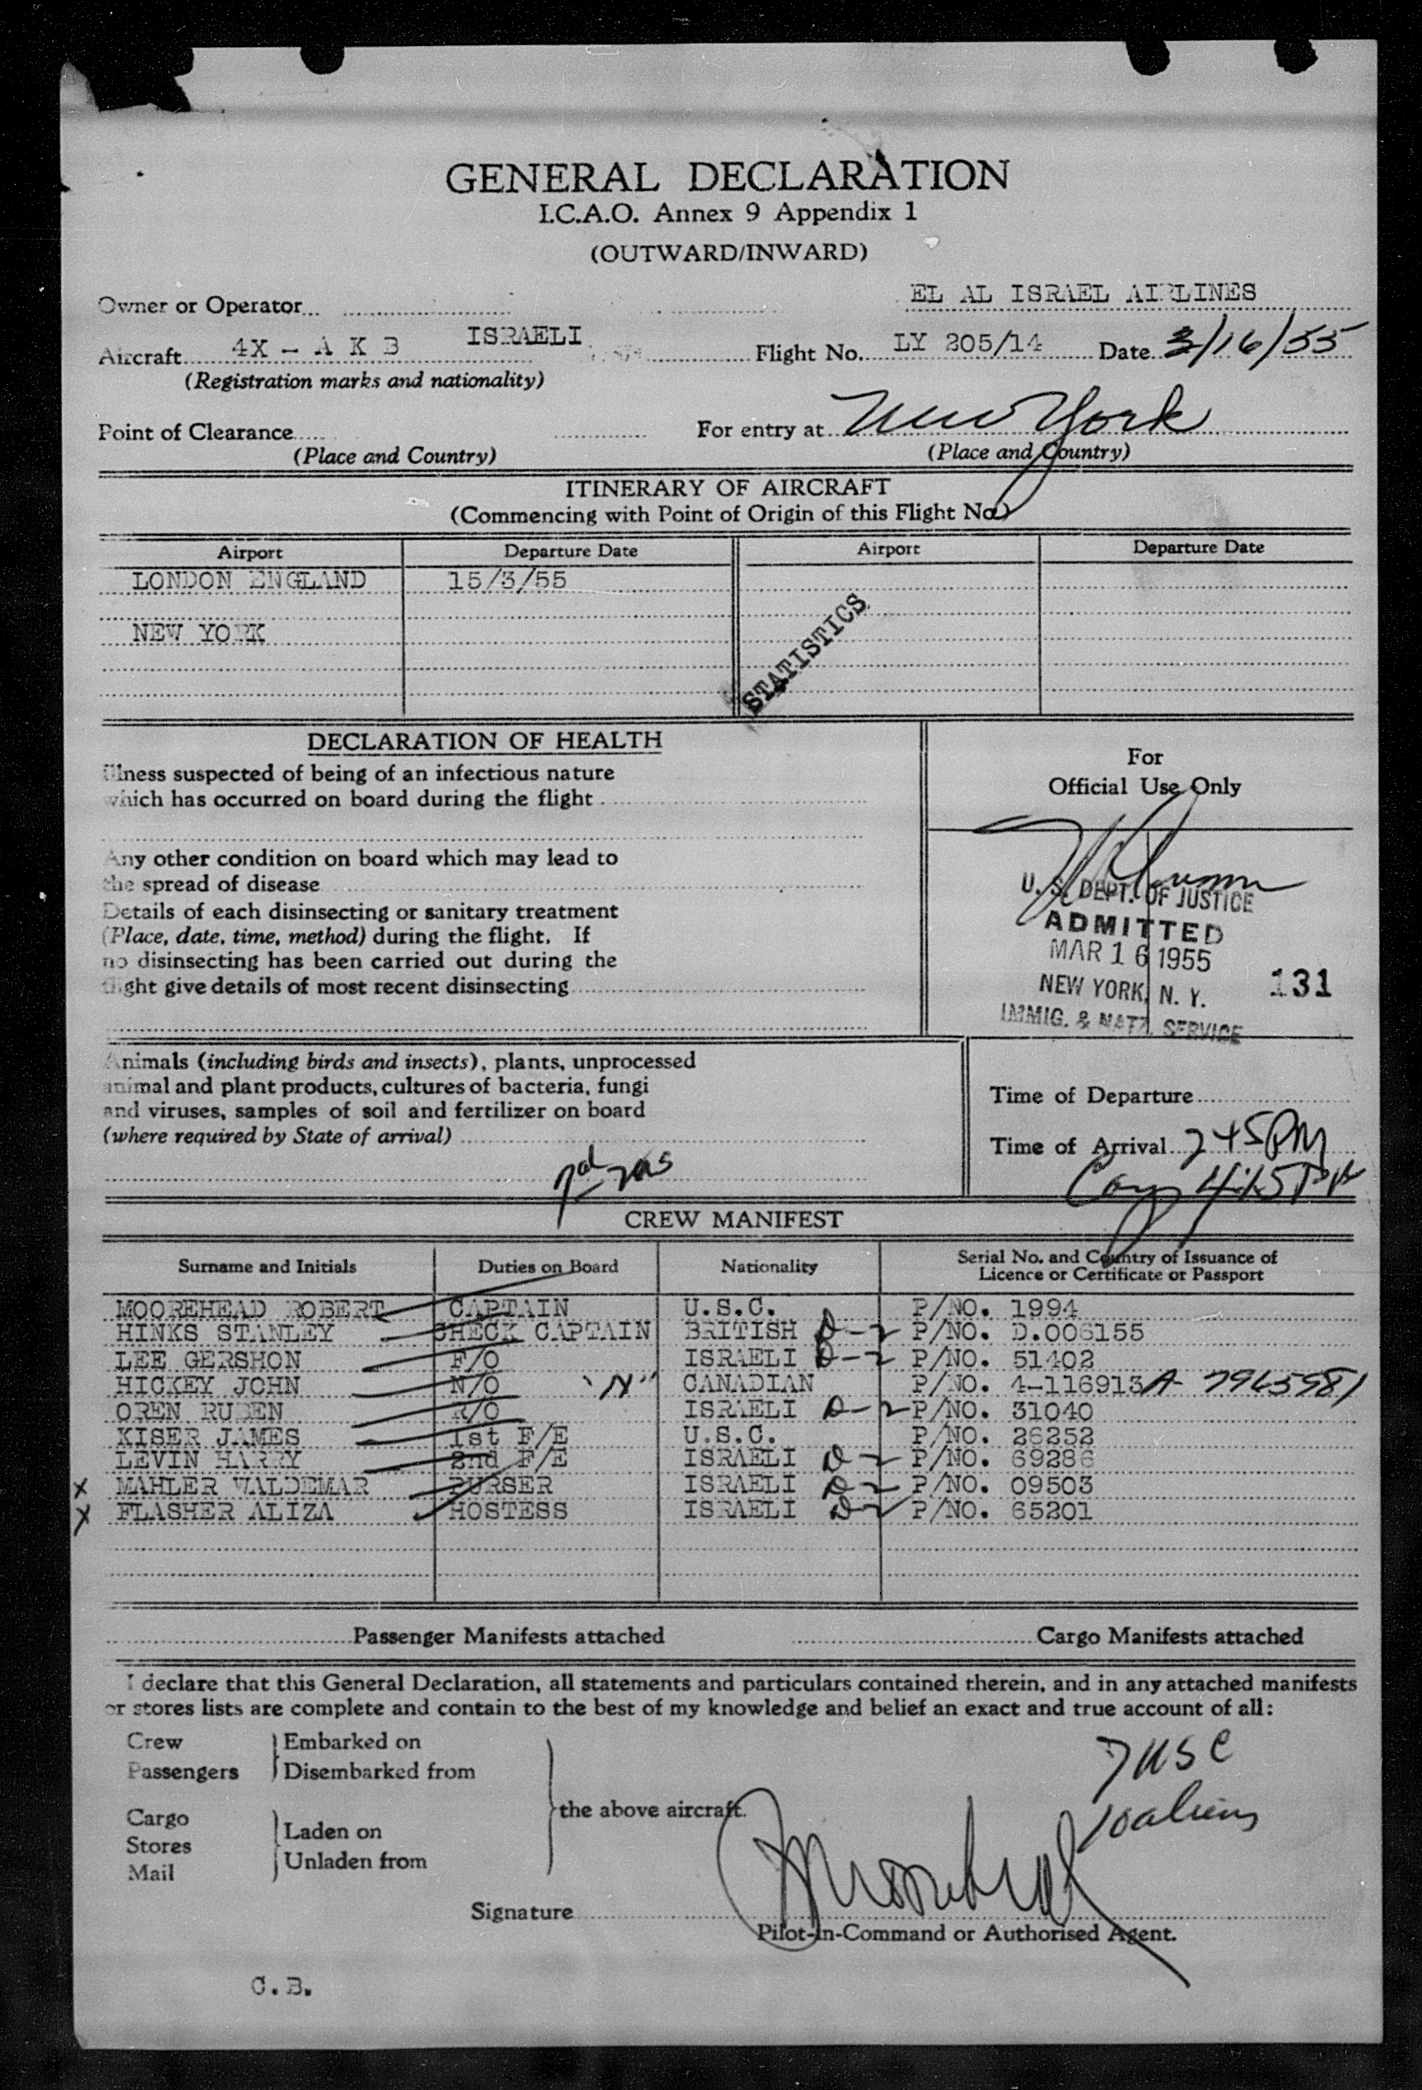 GENERAL DECLARATION
I.C.A.O. Annex 9 Appendix 1
(OUTWARD/INWARD)
Owner or Operator EL AL ISRAEL AIRLINES
Aircraft 4X - A K B ISRAELI Flight No. LY 205/14 Date 3/16/55
(Registration marks and nationality)
Point of Clearance For entry at New York
(Place and Country) (Place and Country)
ITINERARY OF AIRCRAFT
(Commencing with Point of Origin of this Flight No.)
Airport Departure Date Airport Departure Date
LONDON ENGLAND 15/3/55
NEW YORK
STATISTICS
DECLARATION OF HEALTH
Illness suspected of being of an infectious nature
which has occurred on board during the flight
Any other condition on board which may lead to
the spread of disease
Details of each disinsecting or sanitary treatment
(Place, date, time, method) during the flight. If
no disinsecting has been carried out during the
flight give details of most recent disinsecting
For
Official Use Only
U. S. DEPT. OF JUSTICE
ADMITTED
MAR 16 1955
NEW YORK, N. Y. 131
IMMIG. & NATZ. SERVICE
Animals (including birds and insects), plants, unprocessed
animal and plant products, cultures of bacteria, fungi
and viruses, samples of soil and fertilizer on board
(where required by State of arrival)
Time of Departure
Time of Arrival 245PM
4:15PM
CREW MANIFEST
Surname and Initials Duties on Board Nationality Serial No. and Country of Issuance of
Licence or Certificate or Passport
MOOREHEAD ROBERT CAPTAIN U.S.C. P/NO. 1994
HINKS STANLEY CHECK CAPTAIN BRITISH D-2 P/NO. D.006155
LEE GERSHON F/O ISRAELI D-2 P/NO. 51402
HICKEY JOHN N/O "N" CANADIAN P/NO. 4-116913 A- 7965981
OREN RUBEN R/O ISRAELI D-2 P/NO. 31040
KISER JAMES 1st F/E U.S.C. P/NO. 26252
LEVIN HARRY 2nd F/E ISRAELI D-2 P/NO. 69286
x MAHLER WALDEMAR PURSER ISRAELI D-2 P/NO. 09503
x FLASHER ALIZA HOSTESS ISRAELI D-2 P/NO. 65201
Passenger Manifests attached Cargo Manifests attached
I declare that this General Declaration, all statements and particulars contained therein, and in any attached manifests
or stores lists are complete and contain to the best of my knowledge and belief an exact and true account of all:
Crew Embarked on
Passengers Disembarked from
7 USC
the above aircraft.
10 aliens
Cargo
Laden on
Stores
Unladen from
Mail
Signature
Pilot-in-Command or Authorised Agent.
C.B.